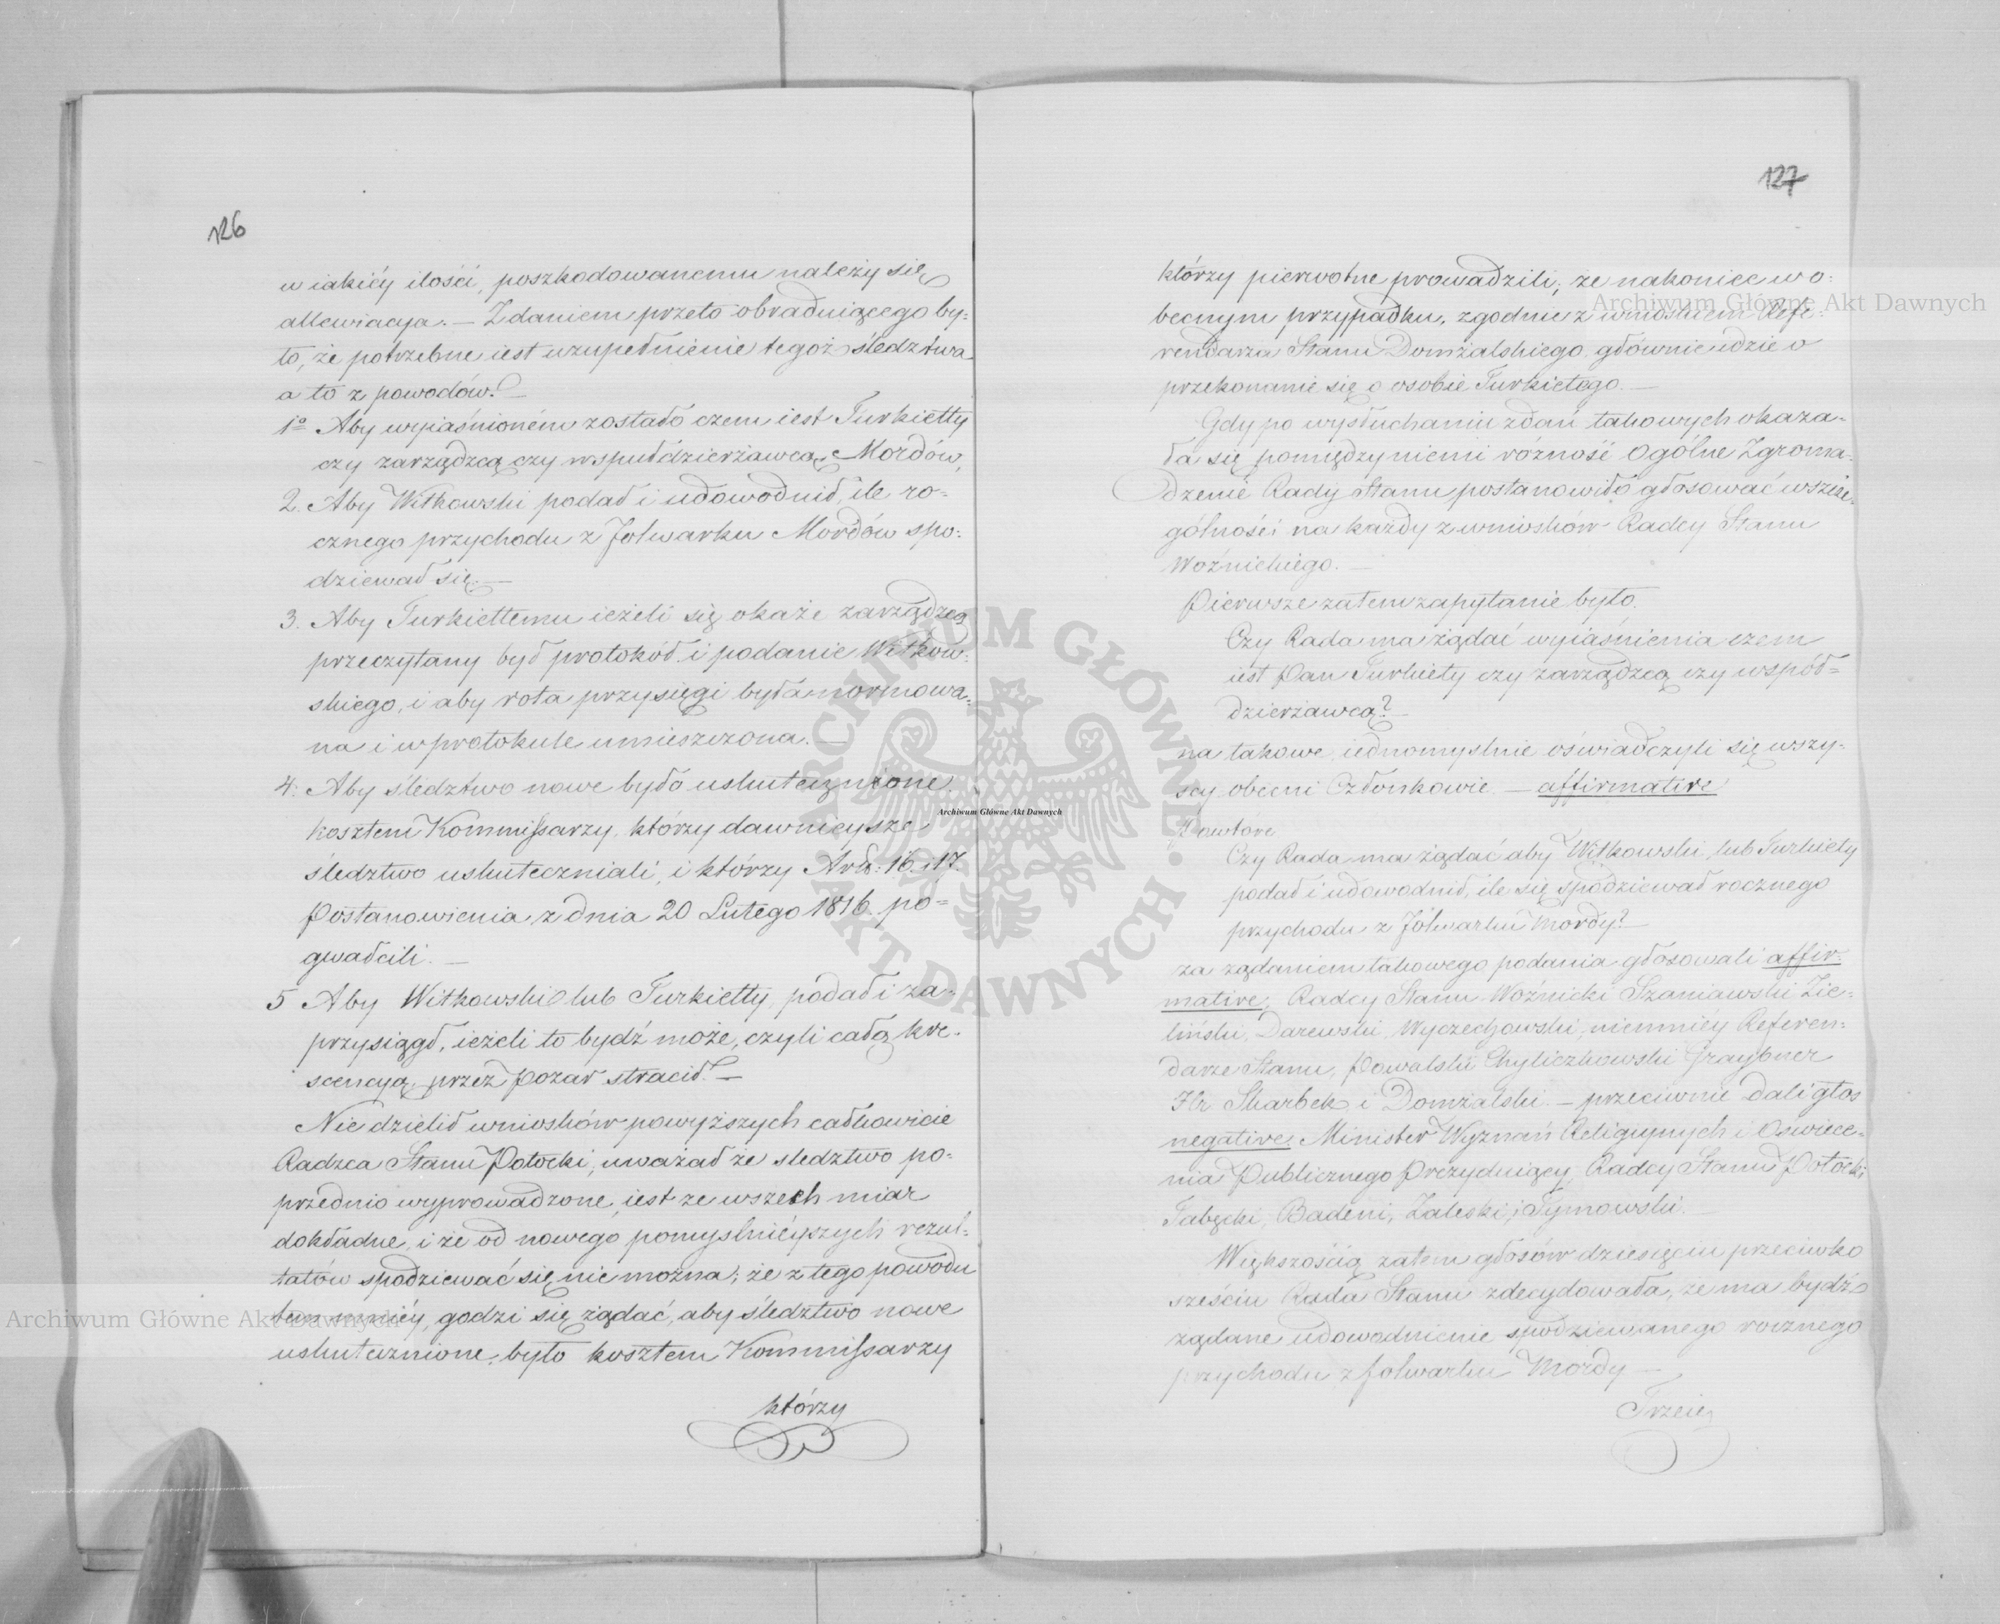 126
w iakiéy ilości, poszkodowanemu należy się
allewiacya. — Zdaniem przeto obraduiącego by-
ło, że potrzebne iest uzupełnienie tegoż śledztwa
a to z powodów. —
1o Aby wyiaśnioném zostało czem iest Turkietty
czy zarządzcą czy wspułdzierżawcą Mordów,
2. Aby Witkowski podał i udowodnił, ile ro-
cznego przychodu z Folwarku Mordów spo-
dziewał się. —
3. Aby Turkiettemu ieżeli się okaże zarządzcą
przeczytany był protokół i podanie Witkow-
skiego, i aby rota przysięgi była normowa-
na i w protokule umieszczona. —
4. Aby śledztwo nowe było uskutecznione
kosztem Kommissarzy, którzy dawnieysze
śledztwo uskuteczniali, i którzy Art: 16. i 17.
Postanowienia z dnia 20 Lutego 1816. po-
gwałcili. —
5 Aby Witkowski lub Turkietty podał i za-
przysiągł, ieżeli to bydź może, czyli całą kre-
scencyą przez pożar stracił. —
Nie dzielił wniosków powyższych całkowicie
Radzca Stanu Potocki, uważał że sledztwo po-
przednio wyprowadzone iest ze wszech miar
dokładne, i że od nowego pomyslnieyszych rezul-
tatów spodziewać się nie można; że z tego powodu
tem mniéy, godzi się żądać, aby śledztwo nowe
uskutecznione było kosztem Kommissarzy
którzy
127
którzy pierwotne prowadzili; że nakoniec w o-
becnym przypadku, zgodnie z wnioskiem Refe-
rendarza Stanu Domżalskiego, głównie idzie o
przekonanie się o osobie Turkietego. —
Gdy po wysłuchaniu zdań takowych okaza-
ła się pomiędzy niemi różność Ogólne Zgroma-
dzenie Rady Stanu postanowiło głosować w szcze-
gólności na każdy z wniosków Radcy Stanu
Woźnickiego. —
Pierwsze zatem zapytanie było.
Czy Rada ma żądać wyiaśnienia czem
iest Pan Turkiety czy zarządzcą czy współ-
dzierżawcą? —
na takowe iednomyslnie oświadczyli się wszy-
scy obecni Członkowie — affirmative
Powtóre
Czy Rada ma żądać aby Witkowski lub Turkiety
podał i udowodnił, ile się spodziewał rocznego
przychodu z Folwarku Mordy? —
za żądaniem takowego podania głosowali affir-
mative, Radcy Stanu Woźnicki Szaniawski Zie-
liński, Darewski, Wyczechowski, niemniéy Referen-
darze Stanu, Kowalski Chyliczkowski Graybner
Hr. Skarbek i Domżalski. — przeciwnie dali głos
negative. Minister Wyznań Religiynych i Oswiece-
nia Publicznego Prezyduiący, Radcy Stanu Potocki,
Tabęcki, Badeni, Zaleski, Tymowski. —
Większością zatem głosów dziesięciu przeciwko
sześciu Rada Stanu zdecydowała, że ma bydź
żądane udowodnienie spodziewanego rocznego
przychodu z folwarku Mordy —
Trzecie
Archiwum Główne Akt Dawnych
Archiwum Główne Akt Dawnych
Archiwum Główne Akt Dawnych
ARCHIWUM GŁÓWNE AKT DAWNYCH